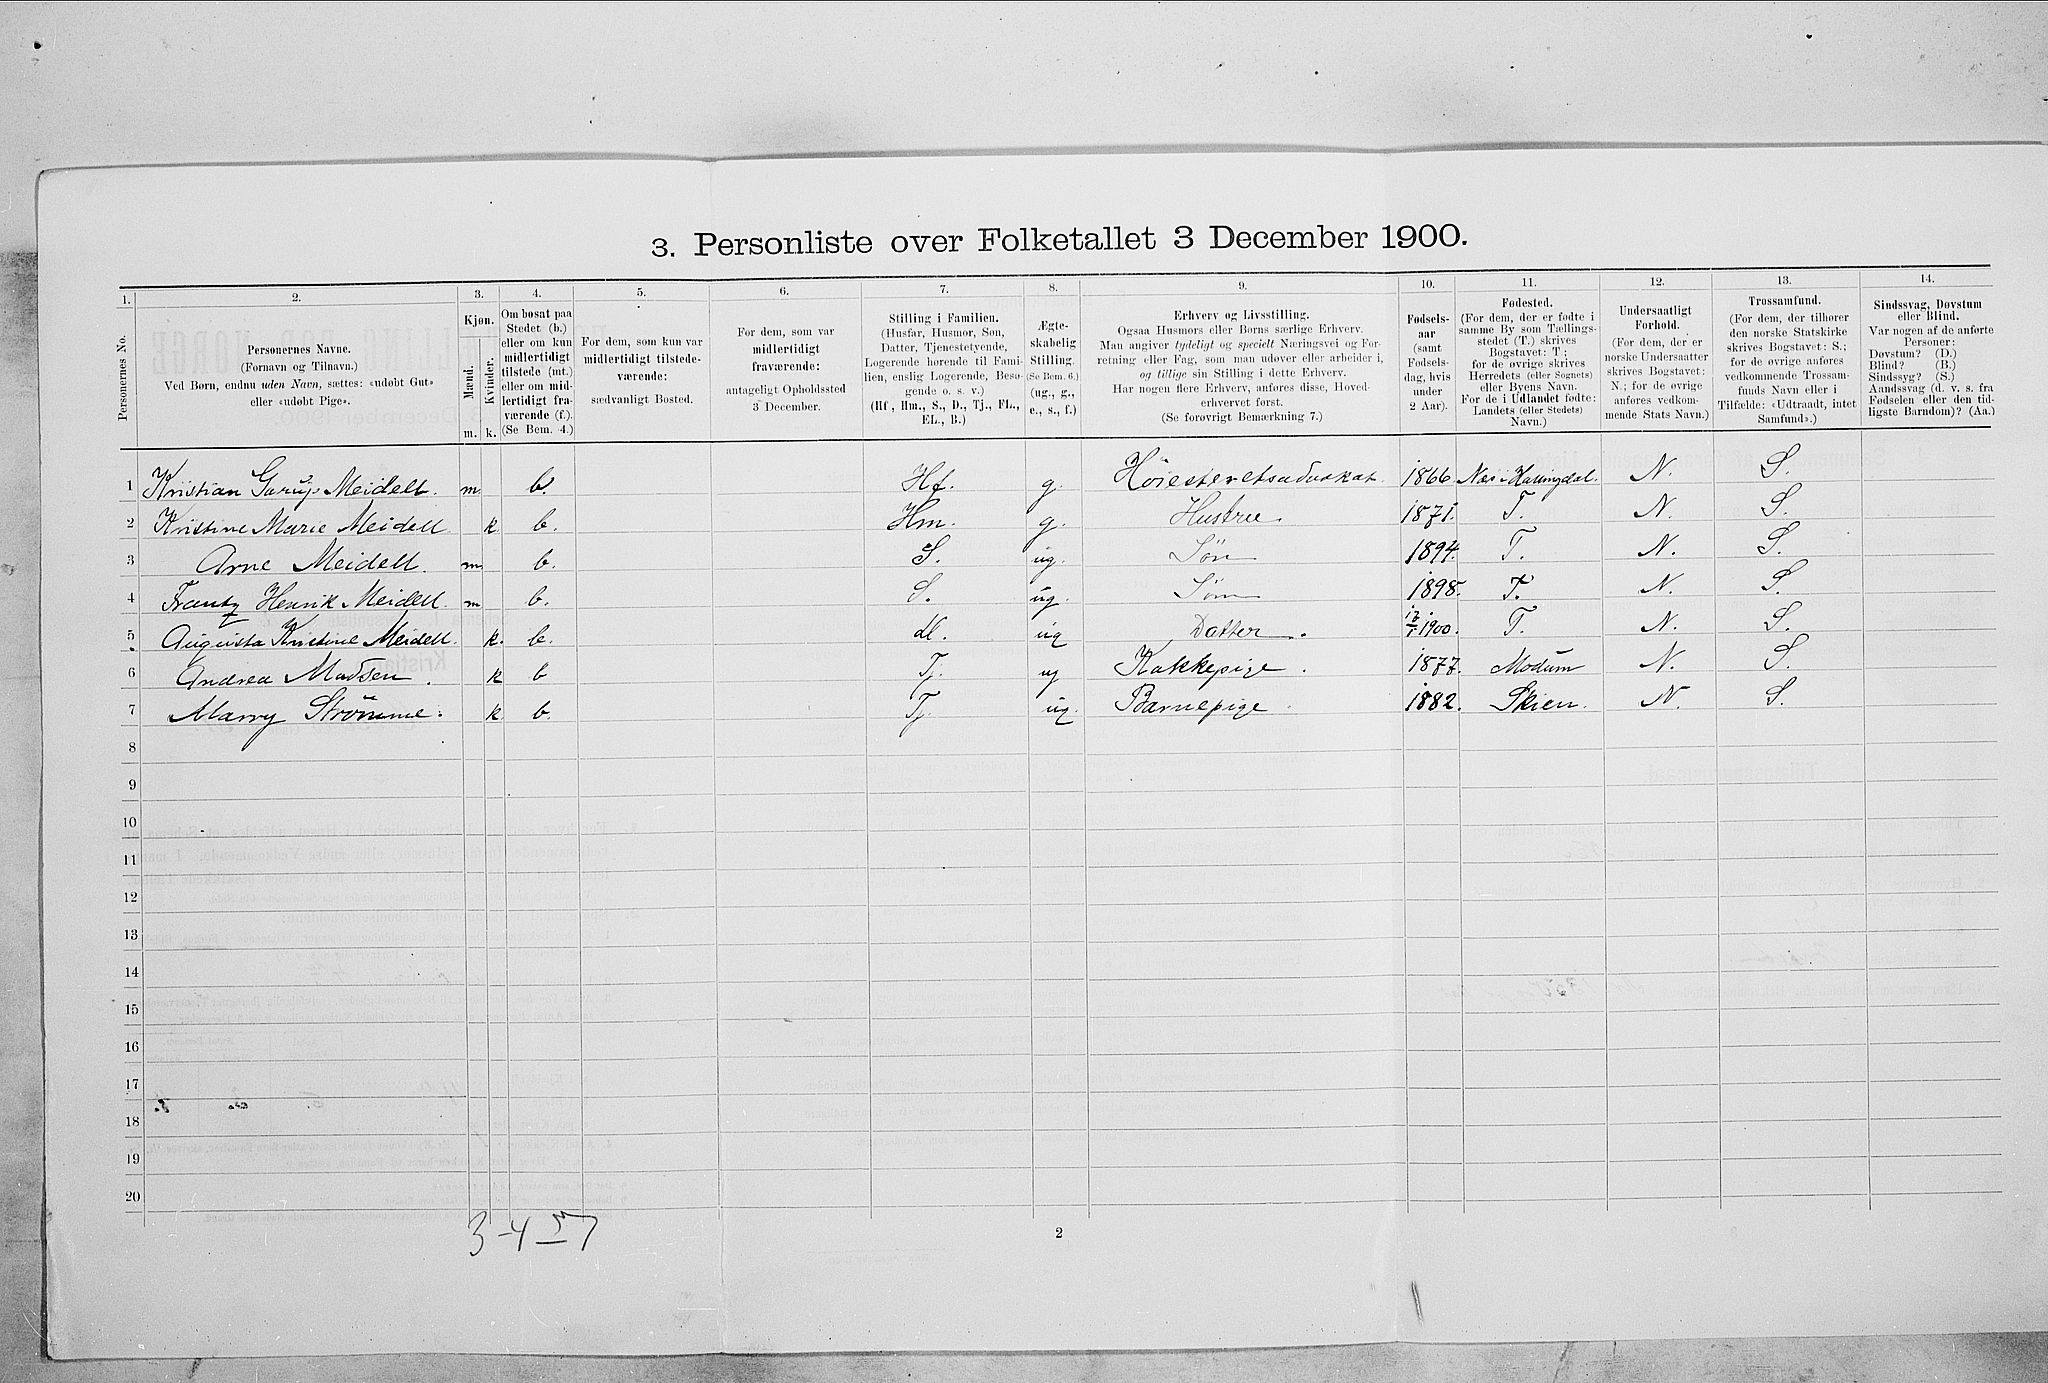 3. Personliste over Folketallet 3 December 1900.
1. 2. 3. 4. 5. 6. 7. 8. 9. 10. 11. 12. 13. 14.
Personernes No.
Personernes Navne.
(Fornavn og Tilnavn.)
Ved Børn, endnu uden Navn, sættes: «udøbt Gut»
eller «udøbt Pige».
Kjøn.
Mænd.
Kvinder.
m. k.
Om bosat paa
Stedet (b.)
eller om kun
midlertidigt
tilstede (mt.)
eller om mid-
lertidigt fra-
værende (f.)
(Se Bem. 4.)
For dem, som kun var
midlertidigt tilstede-
værende:
sædvanligt Bosted.
For dem, som var
midlertidigt
fraværende:
antageligt Opholdssted
3 December.
Stilling i Familien.
(Husfar, Husmor, Søn,
Datter, Tjenestetyende,
Logerende hørende til Fami-
lien, enslig Logerende, Besø-
gende o. s. v.)
(Hf., Hm., S., D., Tj., FL.,
EL., B.)
Ægte-
skabelig
Stilling.
(Se Bem. 6.)
(ug., g.,
e., s., f.)
Erhverv og Livsstilling.
Ogsaa Husmors eller Børns særlige Erhverv.
Man angiver tydeligt og specielt Næringsvei og For-
retning eller Fag, som man udøver eller arbeider i,
og tillige sin Stilling i dette Erhverv.
Har nogen flere Erhverv, anføres disse, Hoved-
erhvervet først.
(Se forøvrigt Bemærkning 7.)
Fødsels-
aar
(samt
Fødsels-
dag, hvis
under
2 Aar).
Fødested.
(For dem, der er fødte i
samme By som Tællings-
stedet (T.) skrives
Bogstavet: T.;
for de øvrige skrives
Herredets (eller Sognets)
eller Byens Navn.
For de i Udlandet fødte:
Landets (eller Stedets)
Navn.)
Undersaatligt
Forhold.
(For dem, der er
norske Undersaatter
skrives Bogstavet:
N.; for de øvrige
anføres vedkom-
mende Stats Navn.)
Trossamfund.
(For dem, der tilhører
den norske Statskirke
skrives Bogstavet: S.;
for de øvrige anføres
vedkommende Trossam-
funds Navn eller i
Tilfælde: «Udtraadt, intet
Samfund».)
Sindssvag, Døvstum
eller Blind.
Var nogen af de anførte
Personer:
Døvstum? (D.)
Blind? (B.)
Sindssyg? (S.)
Aandssvag (d. v. s. fra
Fødselen eller den tid-
ligste Barndom)? (Aa.)
1 Kristian Garup Meidell. m. b. Hf. g. Høiesteretsadvokat. 1866. Næs i Hallingdal. N. S.
2 Kristine Marie Meidell k. b. Hm. g. Hustru. 1871. T. N. S.
3 Arne Meidell. m. b. S. ug. Søn 1894. T. N. S.
4 Frantz Henrik Meidell. m b. S. ug. Søn 1898. T. N. S.
5 Augusta Kristine Meidell. k. b. d. ug Datter. 1900. T. N. S.
6 Andrea Madsen. k b Tj. ug Kokkepige. 1877. Modum N. S.
7 Marry Strømme. k. b. Tj. ug. Barnepige. 1882. Skien. N. S.
8
9
10
11
12
13
14
15
16
17
18
19
20
3-4 7
2